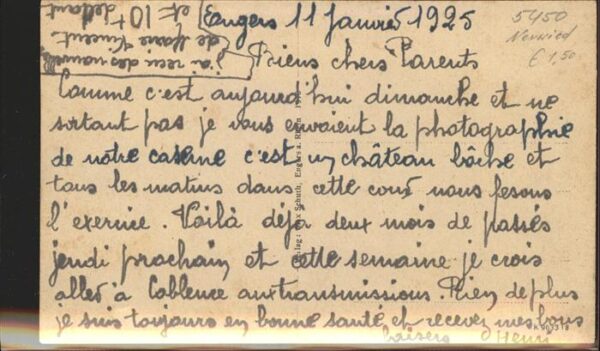 Engers 11 Janvier 1925
Biens chers Parents
Comme c'est aujourd'hui dimanche et ne
sortant pas je vous envoient la photographie
de notre caserne c'est un château bôche et
tous les matins dans cette cour nous fesons
l'exercice. Voilà déja deux mois de passés
jeudi prochain et cette semaine je crois
aller à Coblence aux transmissions. Rien de plus
je suis toujours en bonne santé et recevez mes bons
baisers Henri
j'ai reçu des nouvelles
de Marie Vincent
et 10 +
dedans
5450
Neuwied
€ 1,50
Verlag: Max Schuth, Engers a. Rhein